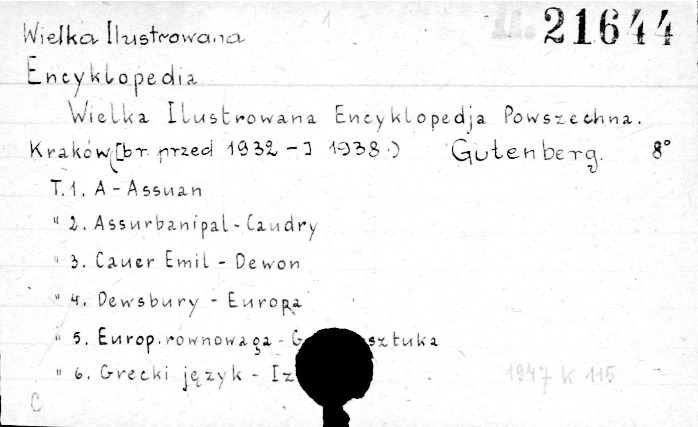 21644
Wielka Ilustrowana
Encyklopedia
Wielka Ilustrowana Encyklopedja Powszechna.
Kraków ([br. przed 1932 - ] 1938.) Gutenberg. 8°
T.1. A - Assuan
" 2. Assurbanipal - Caudry
" 3. Cauer Emil - Dewon
" 4. Dewsbury - Europa
" 5. Europ. równowaga - sztuka
" 6. Grecki język -
1947 K 115
C